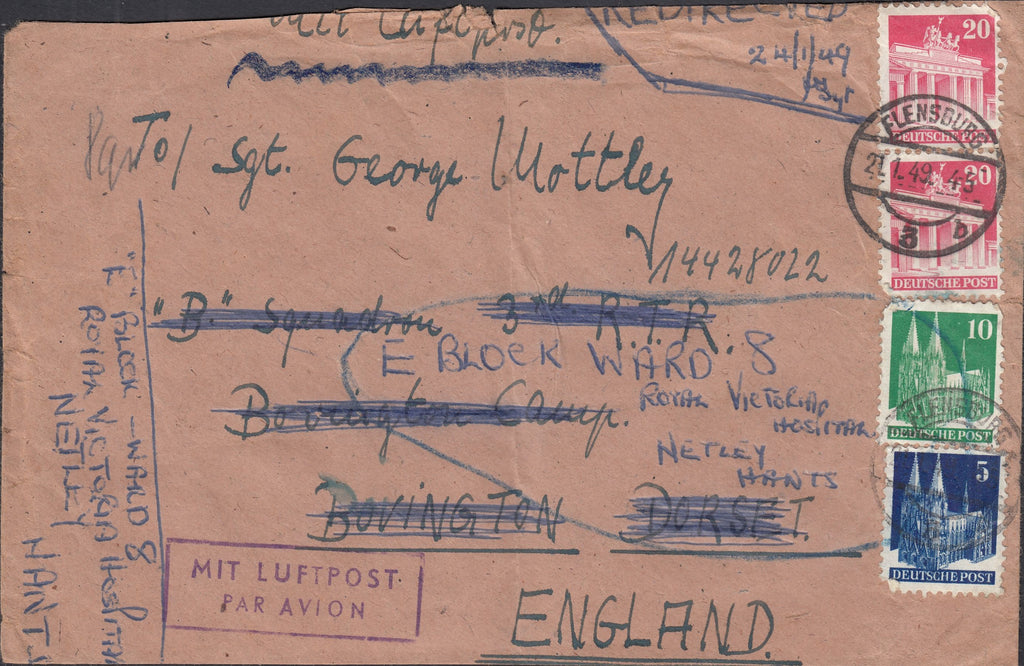 Mit Luftpost.
REDIRECTED
24/1/49
To/ Sgt. George Mottley
14428022
"B" Squadron 3rd R.T.R.
E BLOCK WARD 8
Bovington Camp.
ROYAL VICTORIA
HOSPITAL
NETLEY
HANTS
BOVINGTON DORSET.
ENGLAND.
MIT LUFTPOST
PAR AVION
"E" BLOCK – WARD 8
ROYAL VICTORIA HOSPITAL
NETLEY
HANTS
20
DEUTSCHE POST
20
DEUTSCHE POST
10
DEUTSCHE POST
5
DEUTSCHE POST
FLENSBURG
21.1.49
b